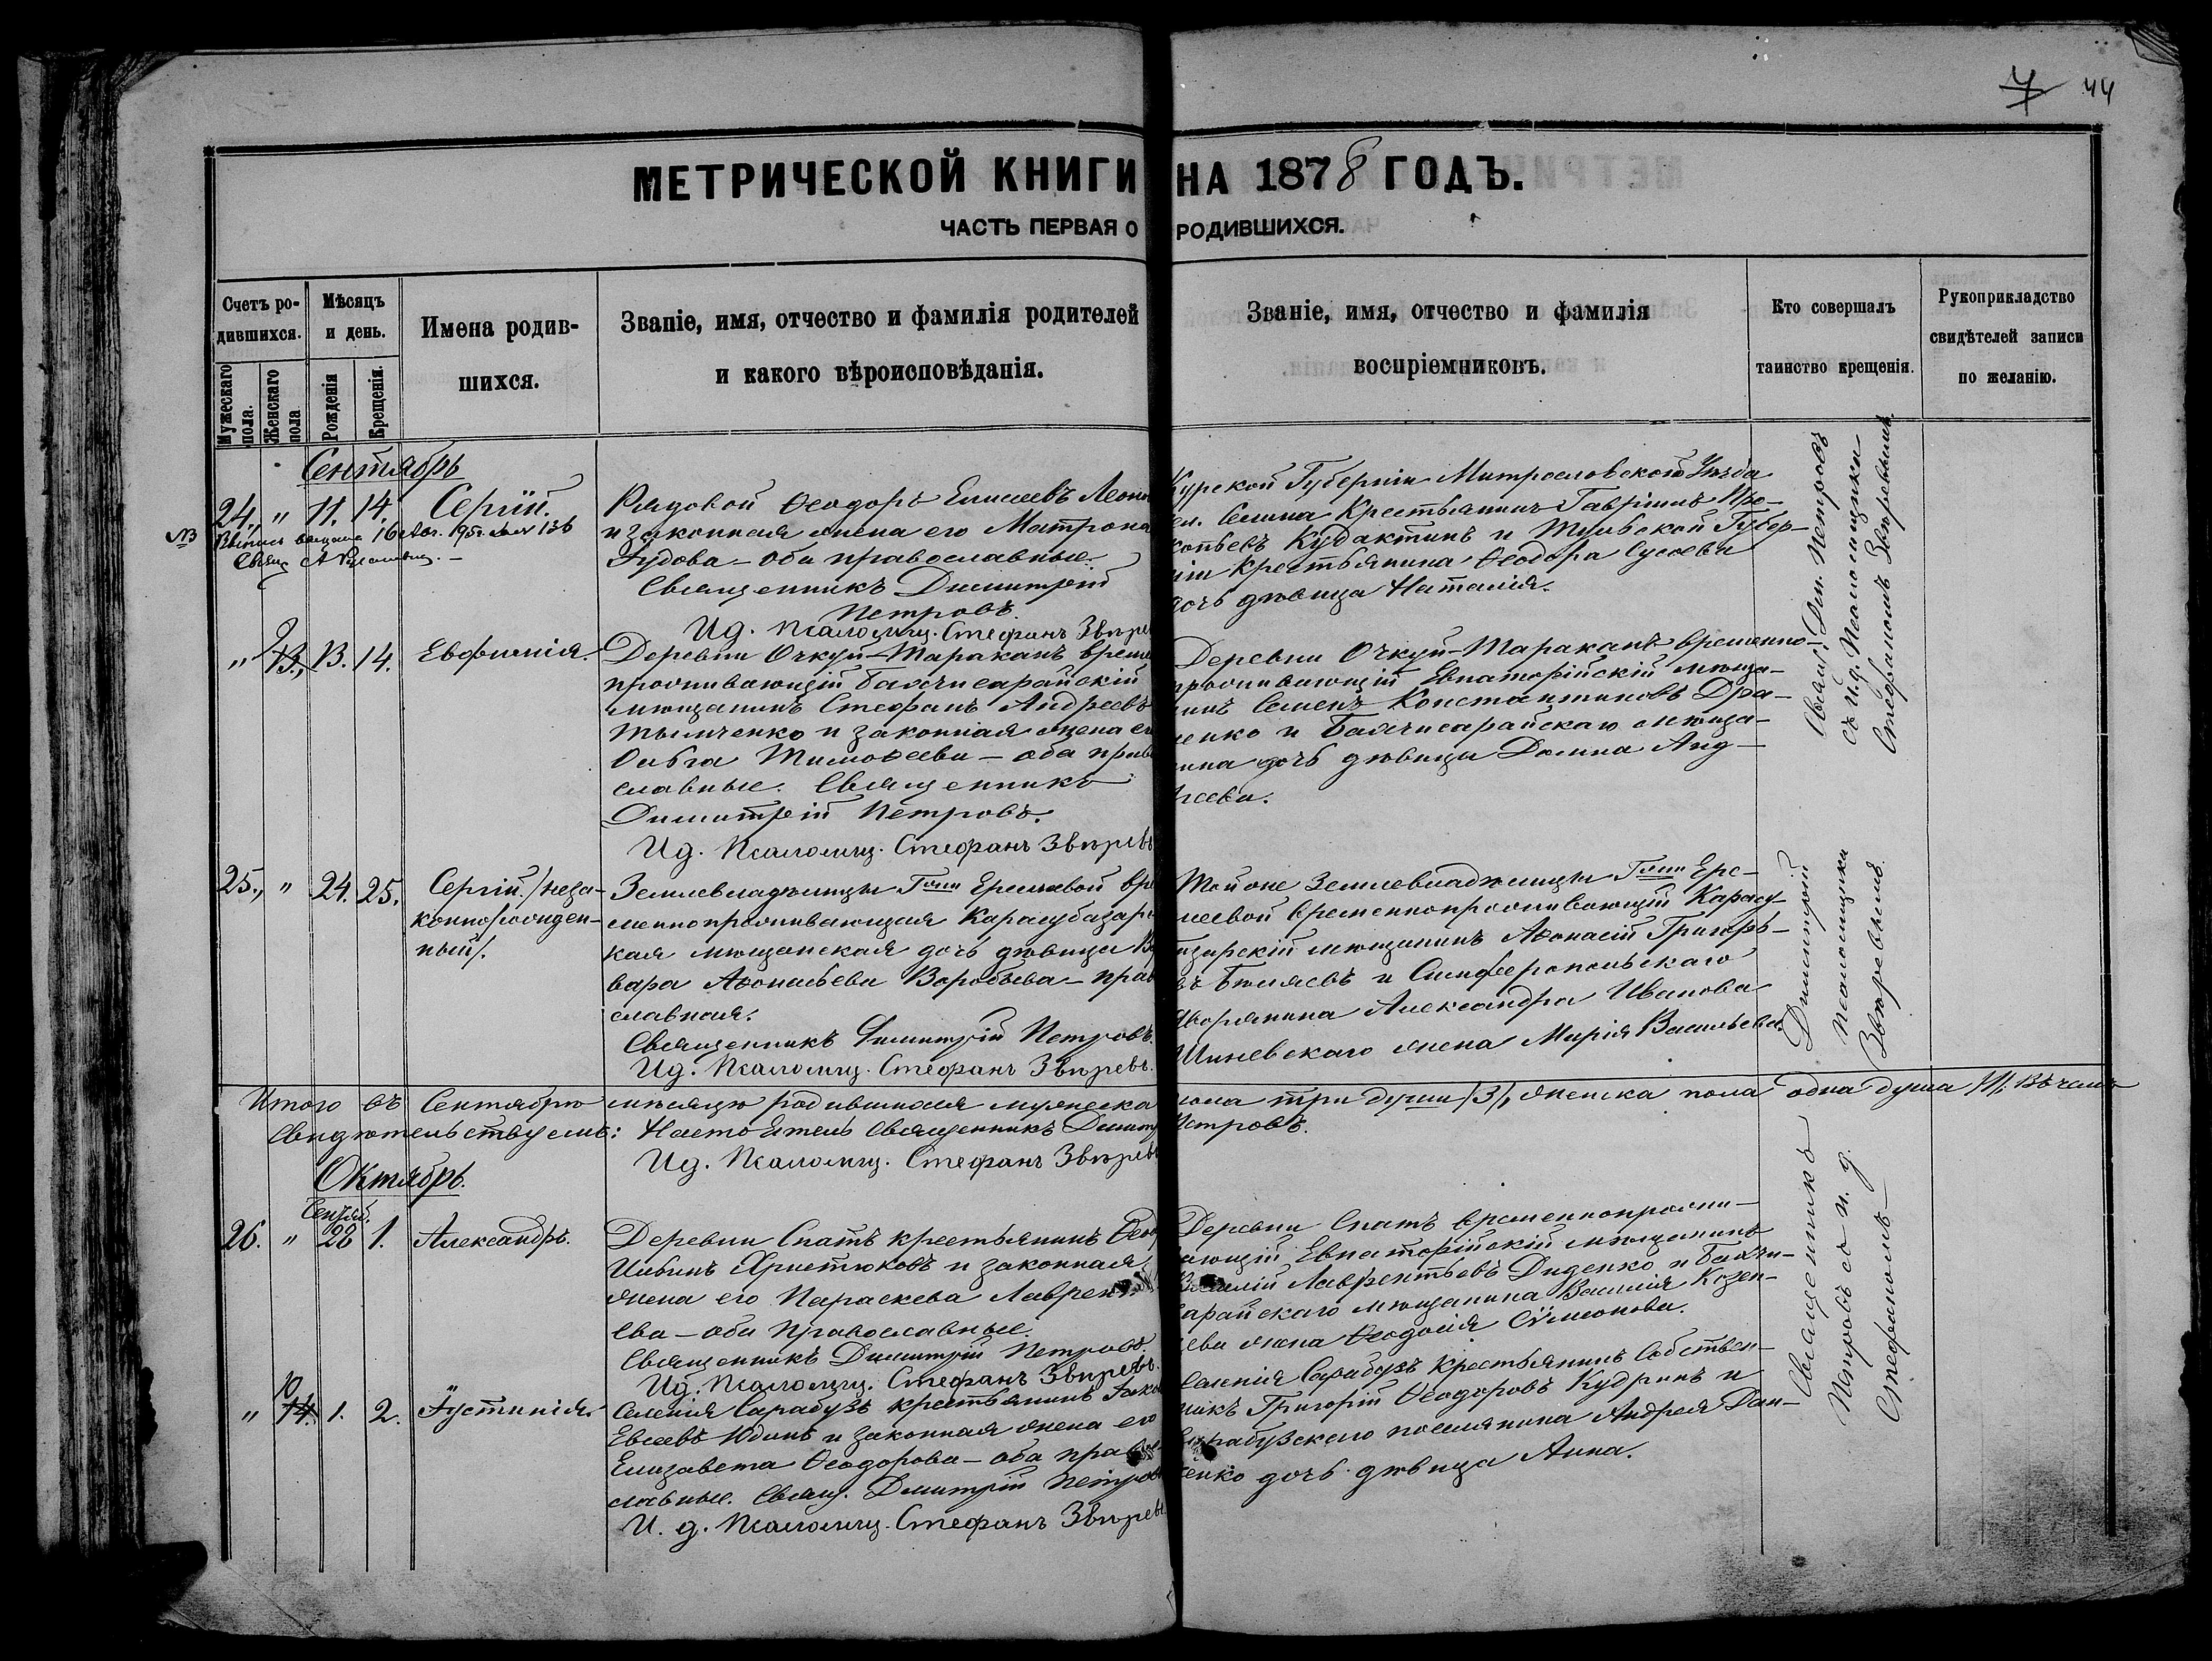 7 44
МЕТРИЧЕСКОЙ КНИГИ НА 1878 ГОДЪ.
ЧАСТЬ ПЕРВАЯ О РОДИВШИХСЯ.
Счетъ ро-
дившихся.
Мужескаго пола.
Женскаго пола
Мѣсяцъ
и день.
Рожденія
Крещенія.
Имена родив-
шихся.
Званіе, имя, отчество и фамилія родителей
и какого вѣроисповѣданія.
Званіе, имя, отчество и фамилія
воспріемниковъ.
Кто совершалъ
таинство крещенія.
Рукоприкладство
свидѣтелей записи
по желанію.
Сентябрь
24. " 11. 14. Сергій.
Рядовой Ѳеодоръ Елисеевъ
и законная жена его Матрона
оба православные.
Священникъ Димитрій
Петровъ.
Ид. Псаломщ. Стефанъ Звѣре
Курской Губерніи Уѣзда
Крестьянинъ Гавріилъ Про-
копьевъ и Тульской Губер-
ніи Крестьянина Ѳеодора
дочь дѣвица Наталія.
Свящ. Дим. Петровъ
съ и.д. Псаломщика
Стефаномъ Звѣревымъ
" 9 13. 13. 14. Евфимія.
Деревни Очкуй-Тараканъ време
проживающій Бахчисарайскій
мѣщанинъ Стефанъ Андреевъ
и законная жена ег
Ольга Тимоѳеева — оба прав
славные. Священникъ
Димитрій Петровъ.
Ид. Псаломщ. Стефанъ Звѣревъ
Деревни Очкуй-Тараканъ временно-
проживающій Евпаторійскій мѣща-
нинъ Семенъ Константиновъ
и Бахчисарайскаго мѣща-
нина дочь дѣвица Домна Анд-
реева.
25., " 24. 25. Сергій. /неза-
коннорожден-
ный/.
Землевладѣлицы Гжи вре
меннопроживающая Карасубазарс
кая мѣщанская дочь дѣвица Ва
вара Аѳонасьева Воробьева — прав
славная.
Священникъ Димитрій Петровъ.
Ид. Псаломщ. Стефанъ Звѣревъ.
Тойоже Землевладѣлицы Гжи
временнопроживающій Карасу
мѣщанинъ Аѳонасій Григорь-
евъ Бѣляевъ и Симферопольскаго
дворянина Александра Иванова
жена Марія Васильева
Димитрій
псаломщика
Звѣревымъ.
Итого въ Сентябрѣ мѣсяцѣ родившихся мужеска пола три души /3/, женска пола одна душа /1/. Въ чемъ
Свидѣтельствуемъ: Настоятель Священникъ Димит Петровъ.
Ид. Псаломщ. Стефанъ Звѣревъ
Октябрь.
Сентяб.
26. " 28 1. Александръ.
Деревни Спатъ крестьянинъ Ѳеод
Ильинъ и законная
жена его Параскева Лаврент
ева — оба православные.
Священникъ Димитрій Петровъ.
Ид. Псаломщ. Стефанъ Звѣревъ.
Деревни Спатъ временнопрожи-
вающій Евпаторійскій мѣщанинъ
Василій Лаврентьевъ Диденко и Бахчи-
сарайскаго мѣщанина Василія Козен-
жена Ѳеодосія Сѵмонова.
Священникъ
Петровъ съ и. д.
Стефаномъ
" 10 14. 1. 2. Іустинія.
Селенія Сарабузъ крестьянинъ Яков
Евсеевъ Юдинъ и законная жена его
Елизавета Ѳеодорова — оба право
славные. Свящ. Димитрій Петровъ
И. д. Псаломщ. Стефанъ Звѣревъ
Селенія Сарабузъ Крестьянинъ Собствен-
никъ Григорій Ѳеодоровъ Кудринъ и
Сарабузскаго поселянина Андрея Дан-
ченко дочь дѣвица Анна.